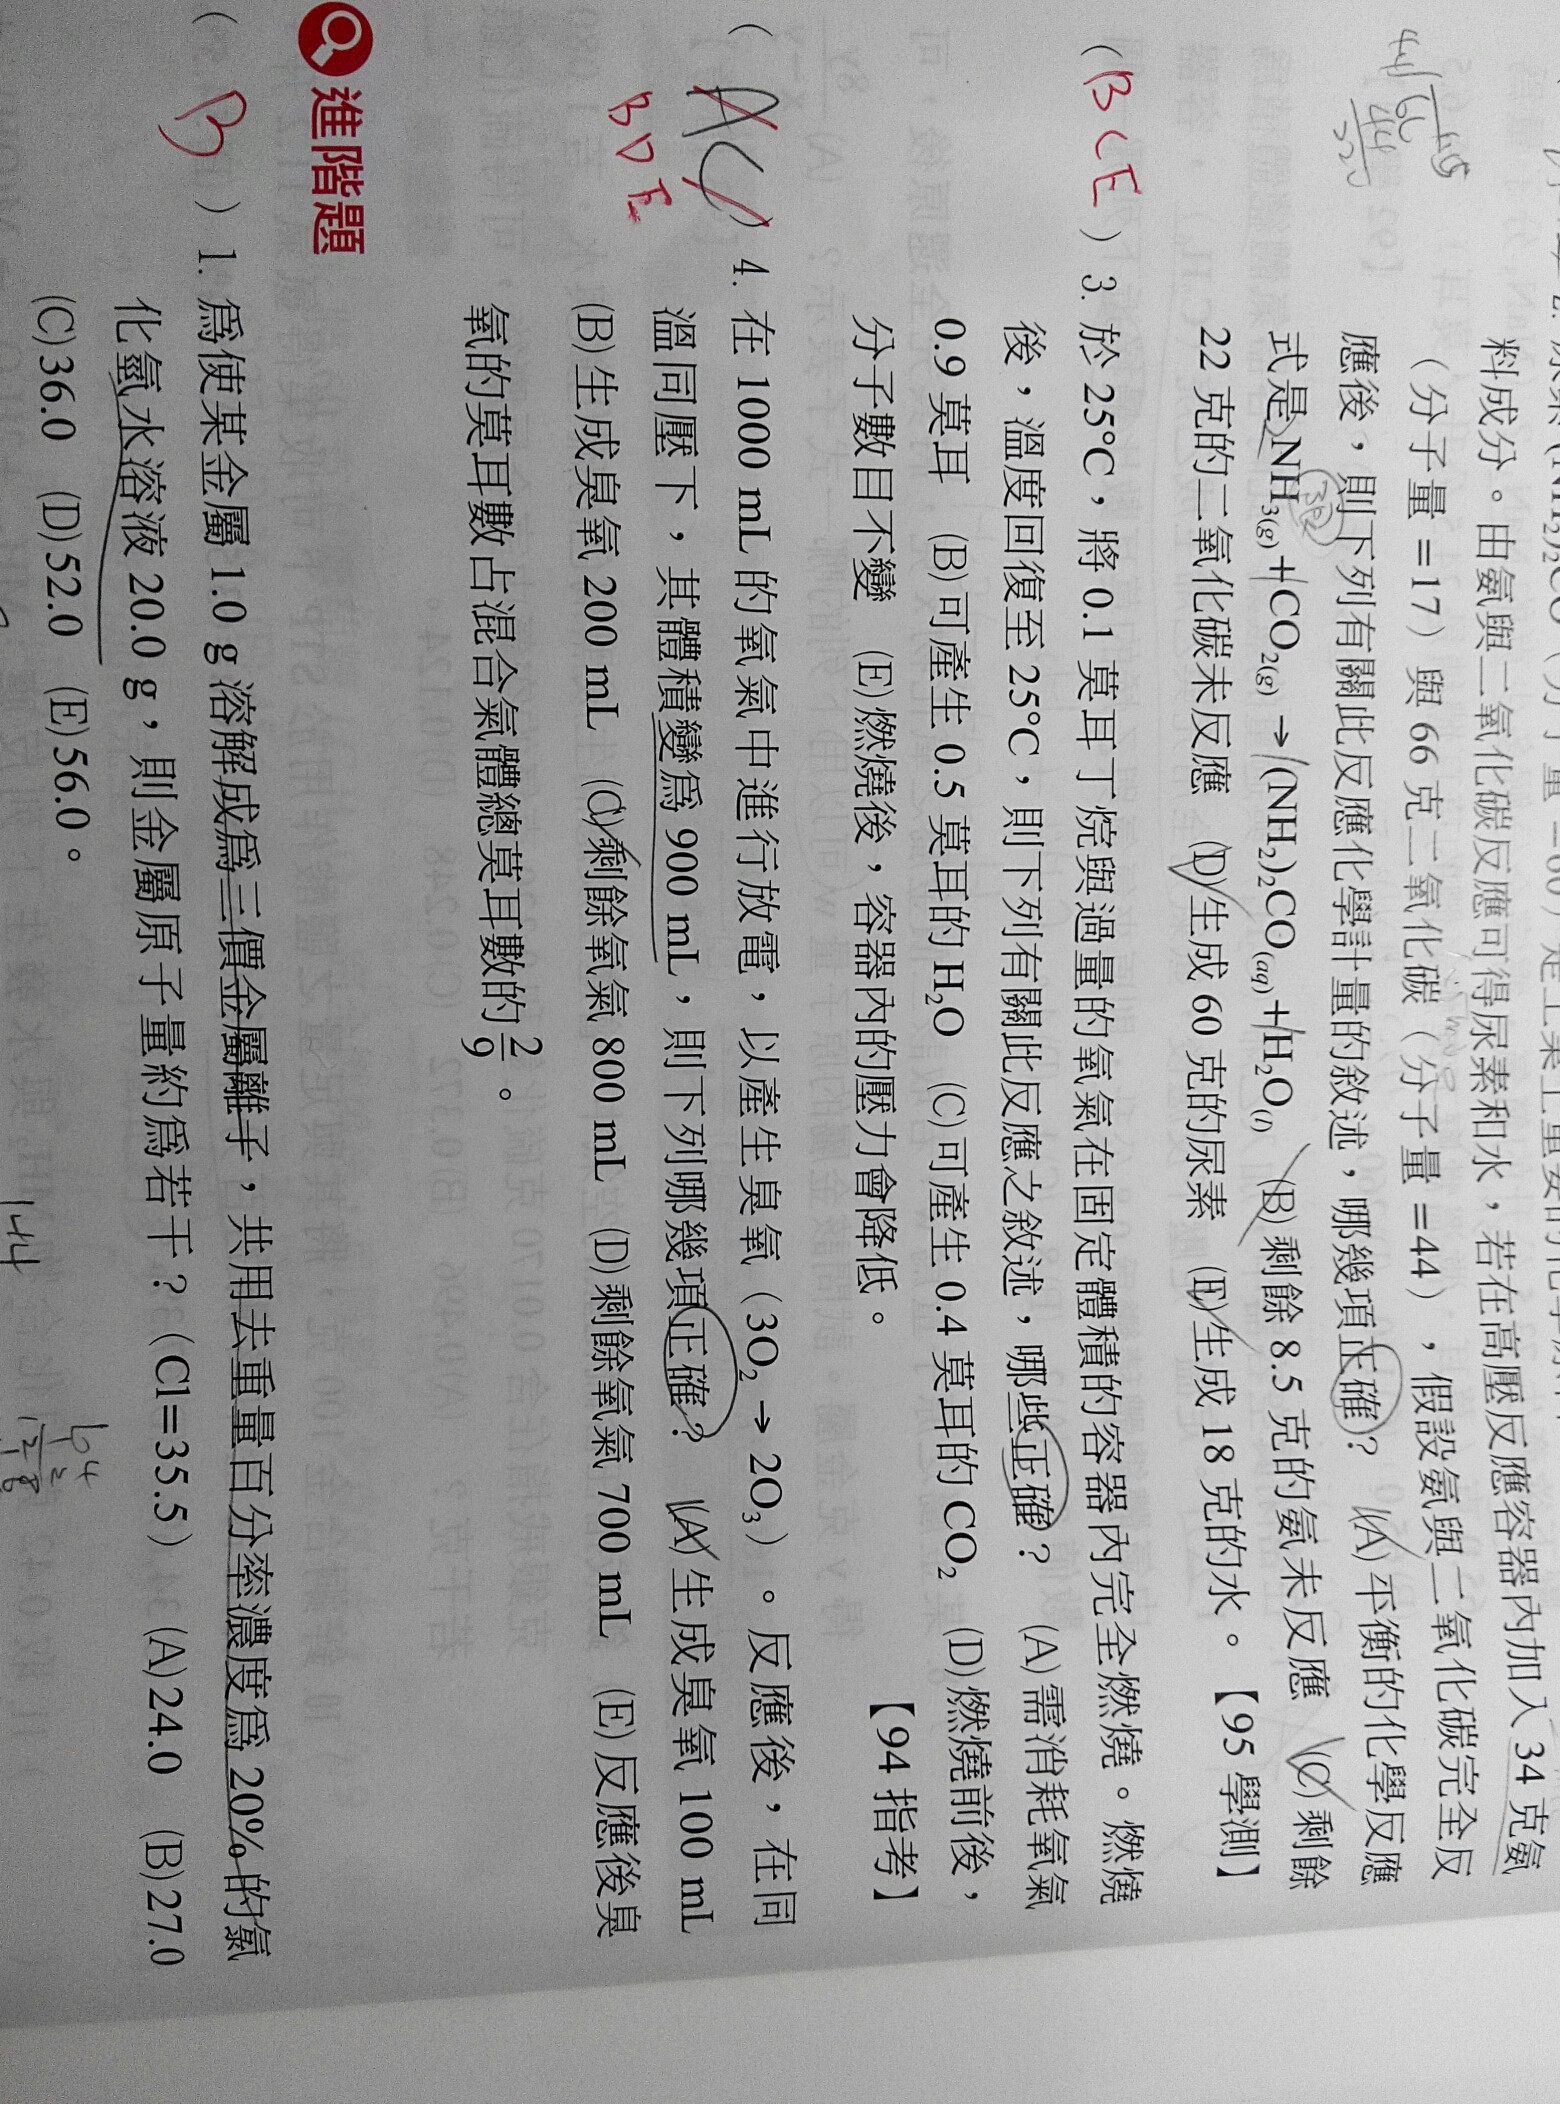 料成分。由氨與二氧化碳反應可得尿素和水，若在高壓反應容器內加入 34 克氨
（分子量 =17）與 66 克二氧化碳（分子量 =44），假設氨與二氧化碳完全反
應後，則下列有關此反應化學計量的敘述，哪幾項正確？ (A)平衡的化學反應
式是 NH3(g)+CO2(g) → (NH2)2CO(aq)+H2O(l) (B)剩餘 8.5 克的氨未反應 (C)剩餘
22 克的二氧化碳未反應 (D)生成 60 克的尿素 (E)生成 18 克的水。【95 學測】
44 66
44
22
( B C E ) 3. 於 25°C，將 0.1 莫耳丁烷與過量的氧氣在固定體積的容器內完全燃燒。燃燒
後，溫度回復至 25°C，則下列有關此反應之敘述，哪些正確？ (A)需消耗氧氣
0.9 莫耳 (B)可產生 0.5 莫耳的 H2O (C)可產生 0.4 莫耳的 CO2 (D)燃燒前後，
分子數目不變 (E)燃燒後，容器內的壓力會降低。 【94 指考】
( AC ) 4. 在 1000 mL 的氧氣中進行放電，以產生臭氧（3O2 → 2O3）。反應後，在同
B D E
溫同壓下，其體積變為 900 mL，則下列哪幾項正確？ (A)生成臭氧 100 mL
(B)生成臭氧 200 mL (C)剩餘氧氣 800 mL (D)剩餘氧氣 700 mL (E)反應後臭
氧的莫耳數占混合氣體總莫耳數的 2/9。
進階題
( B ) 1. 為使某金屬 1.0 g 溶解成為三價金屬離子，共用去重量百分率濃度為 20% 的氯
化氫水溶液 20.0 g，則金屬原子量約為若干？（Cl=35.5） (A)24.0 (B)27.0
(C)36.0 (D)52.0 (E)56.0。
144